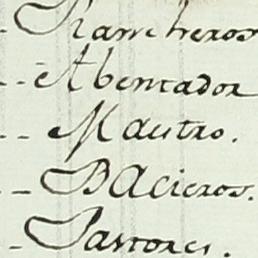 Rancheros
Abentador
Maestro.
Bacieros.
Pastores.